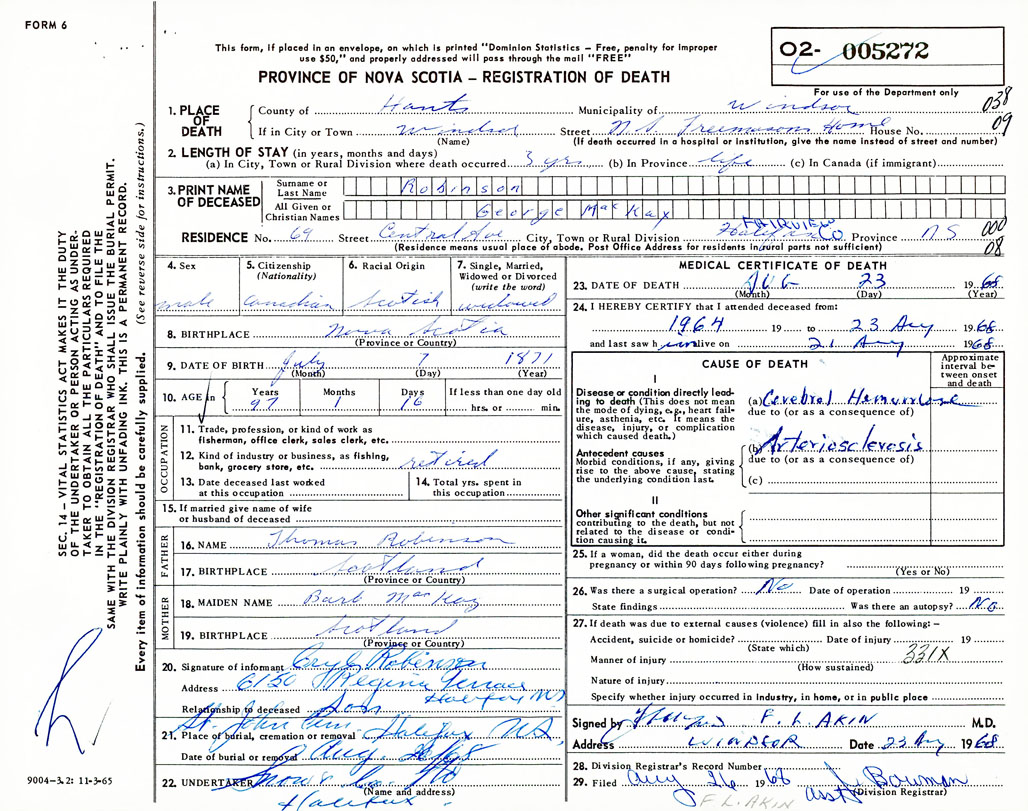 FORM 6
This form, if placed in an envelope, on which is printed "Dominion Statistics – Free, penalty for improper
use $50," and properly addressed will pass through the mail "FREE"
PROVINCE OF NOVA SCOTIA – REGISTRATION OF DEATH
02- 005272
For use of the Department only
038
09
1. PLACE OF DEATH
County of Hants Municipality of Windsor
If in City or Town Windsor Street N.S. Freemasons Home House No.
(Name) (If death occurred in a hospital or institution, give the name instead of street and number)
2. LENGTH OF STAY (in years, months and days)
(a) In City, Town or Rural Division where death occurred 3 yrs (b) In Province life (c) In Canada (if immigrant)
3. PRINT NAME OF DECEASED
Surname or Last Name Robinson
All Given or Christian Names George MacKay
RESIDENCE No. 69 Street Central Ave City, Town or Rural Division FAIRVIEW Province NS
(Residence means usual place of abode. Post Office Address for residents in rural parts not sufficient)
000
08
4. Sex male
5. Citizenship (Nationality) Canadian
6. Racial Origin Scotish
7. Single, Married, Widowed or Divorced (write the word) widowed
8. BIRTHPLACE Nova Scotia
(Province or Country)
9. DATE OF BIRTH July 7 1871
(Month) (Day) (Year)
10. AGE in Years 97 Months 1 Days 16 If less than one day old hrs. or min.
OCCUPATION
11. Trade, profession, or kind of work as
fisherman, office clerk, sales clerk, etc.
12. Kind of industry or business, as fishing,
bank, grocery store, etc. retired
13. Date deceased last worked at this occupation
14. Total yrs. spent in this occupation
15. If married give name of wife
or husband of deceased
FATHER
16. NAME Thomas Robinson
17. BIRTHPLACE Scotland
(Province or Country)
MOTHER
18. MAIDEN NAME Barb MacKay
19. BIRTHPLACE Scotland
(Province or Country)
20. Signature of informant Robinson
Address 6150 Regina Terrace
Halifax NS
Relationship to deceased Son
21. Place of burial, cremation or removal St. John Halifax N.S.
Date of burial or removal Aug. 26/68
22. UNDERTAKER Snow & Co Ltd
(Name and address)
Halifax
MEDICAL CERTIFICATE OF DEATH
23. DATE OF DEATH AUG 23 1968
(Month) (Day) (Year)
24. I HEREBY CERTIFY that I attended deceased from:
1964 19 to 23 Aug 1968
and last saw him alive on 21 Aug 1968
CAUSE OF DEATH
Approximate interval between onset and death
I
Disease or condition directly lead-
ing to death (This does not mean
the mode of dying, e.g., heart fail-
ure, asthenia, etc. It means the
disease, injury, or complication
which caused death.)
(a) Cerebral Hemorrhage
due to (or as a consequence of)
Antecedent causes
Morbid conditions, if any, giving
rise to the above cause, stating
the underlying condition last.
(b) Arteriosclerosis
due to (or as a consequence of)
(c)
II
Other significant conditions
contributing to the death, but not
related to the disease or condi-
tion causing it.
25. If a woman, did the death occur either during
pregnancy or within 90 days following pregnancy?
(Yes or No)
26. Was there a surgical operation? No Date of operation 19
State findings Was there an autopsy? No
27. If death was due to external causes (violence) fill in also the following: –
Accident, suicide or homicide? Date of injury 19
(State which) 331X
Manner of injury
(How sustained)
Nature of injury
Specify whether injury occurred in industry, in home, or in public place
Signed by F. L. AKIN M.D.
Address WINDSOR Date 23 Aug 1968
28. Division Registrar's Record Number
29. Filed Aug 26 1968 J. Bowman
(Division Registrar)
asst
F. L. AKIN
SEC. 14 – VITAL STATISTICS ACT MAKES IT THE DUTY
OF THE UNDERTAKER OR PERSON ACTING AS UNDER-
TAKER TO OBTAIN ALL THE PARTICULARS REQUIRED
IN THE "REGISTRATION OF DEATH" AND TO FILE THE
SAME WITH THE DIVISION REGISTRAR WHO SHALL ISSUE THE BURIAL PERMIT.
WRITE PLAINLY WITH UNFADING INK. THIS IS A PERMANENT RECORD.
Every item of information should be carefully supplied. (See reverse side for instructions.)
9004-3.2: 11-3-65